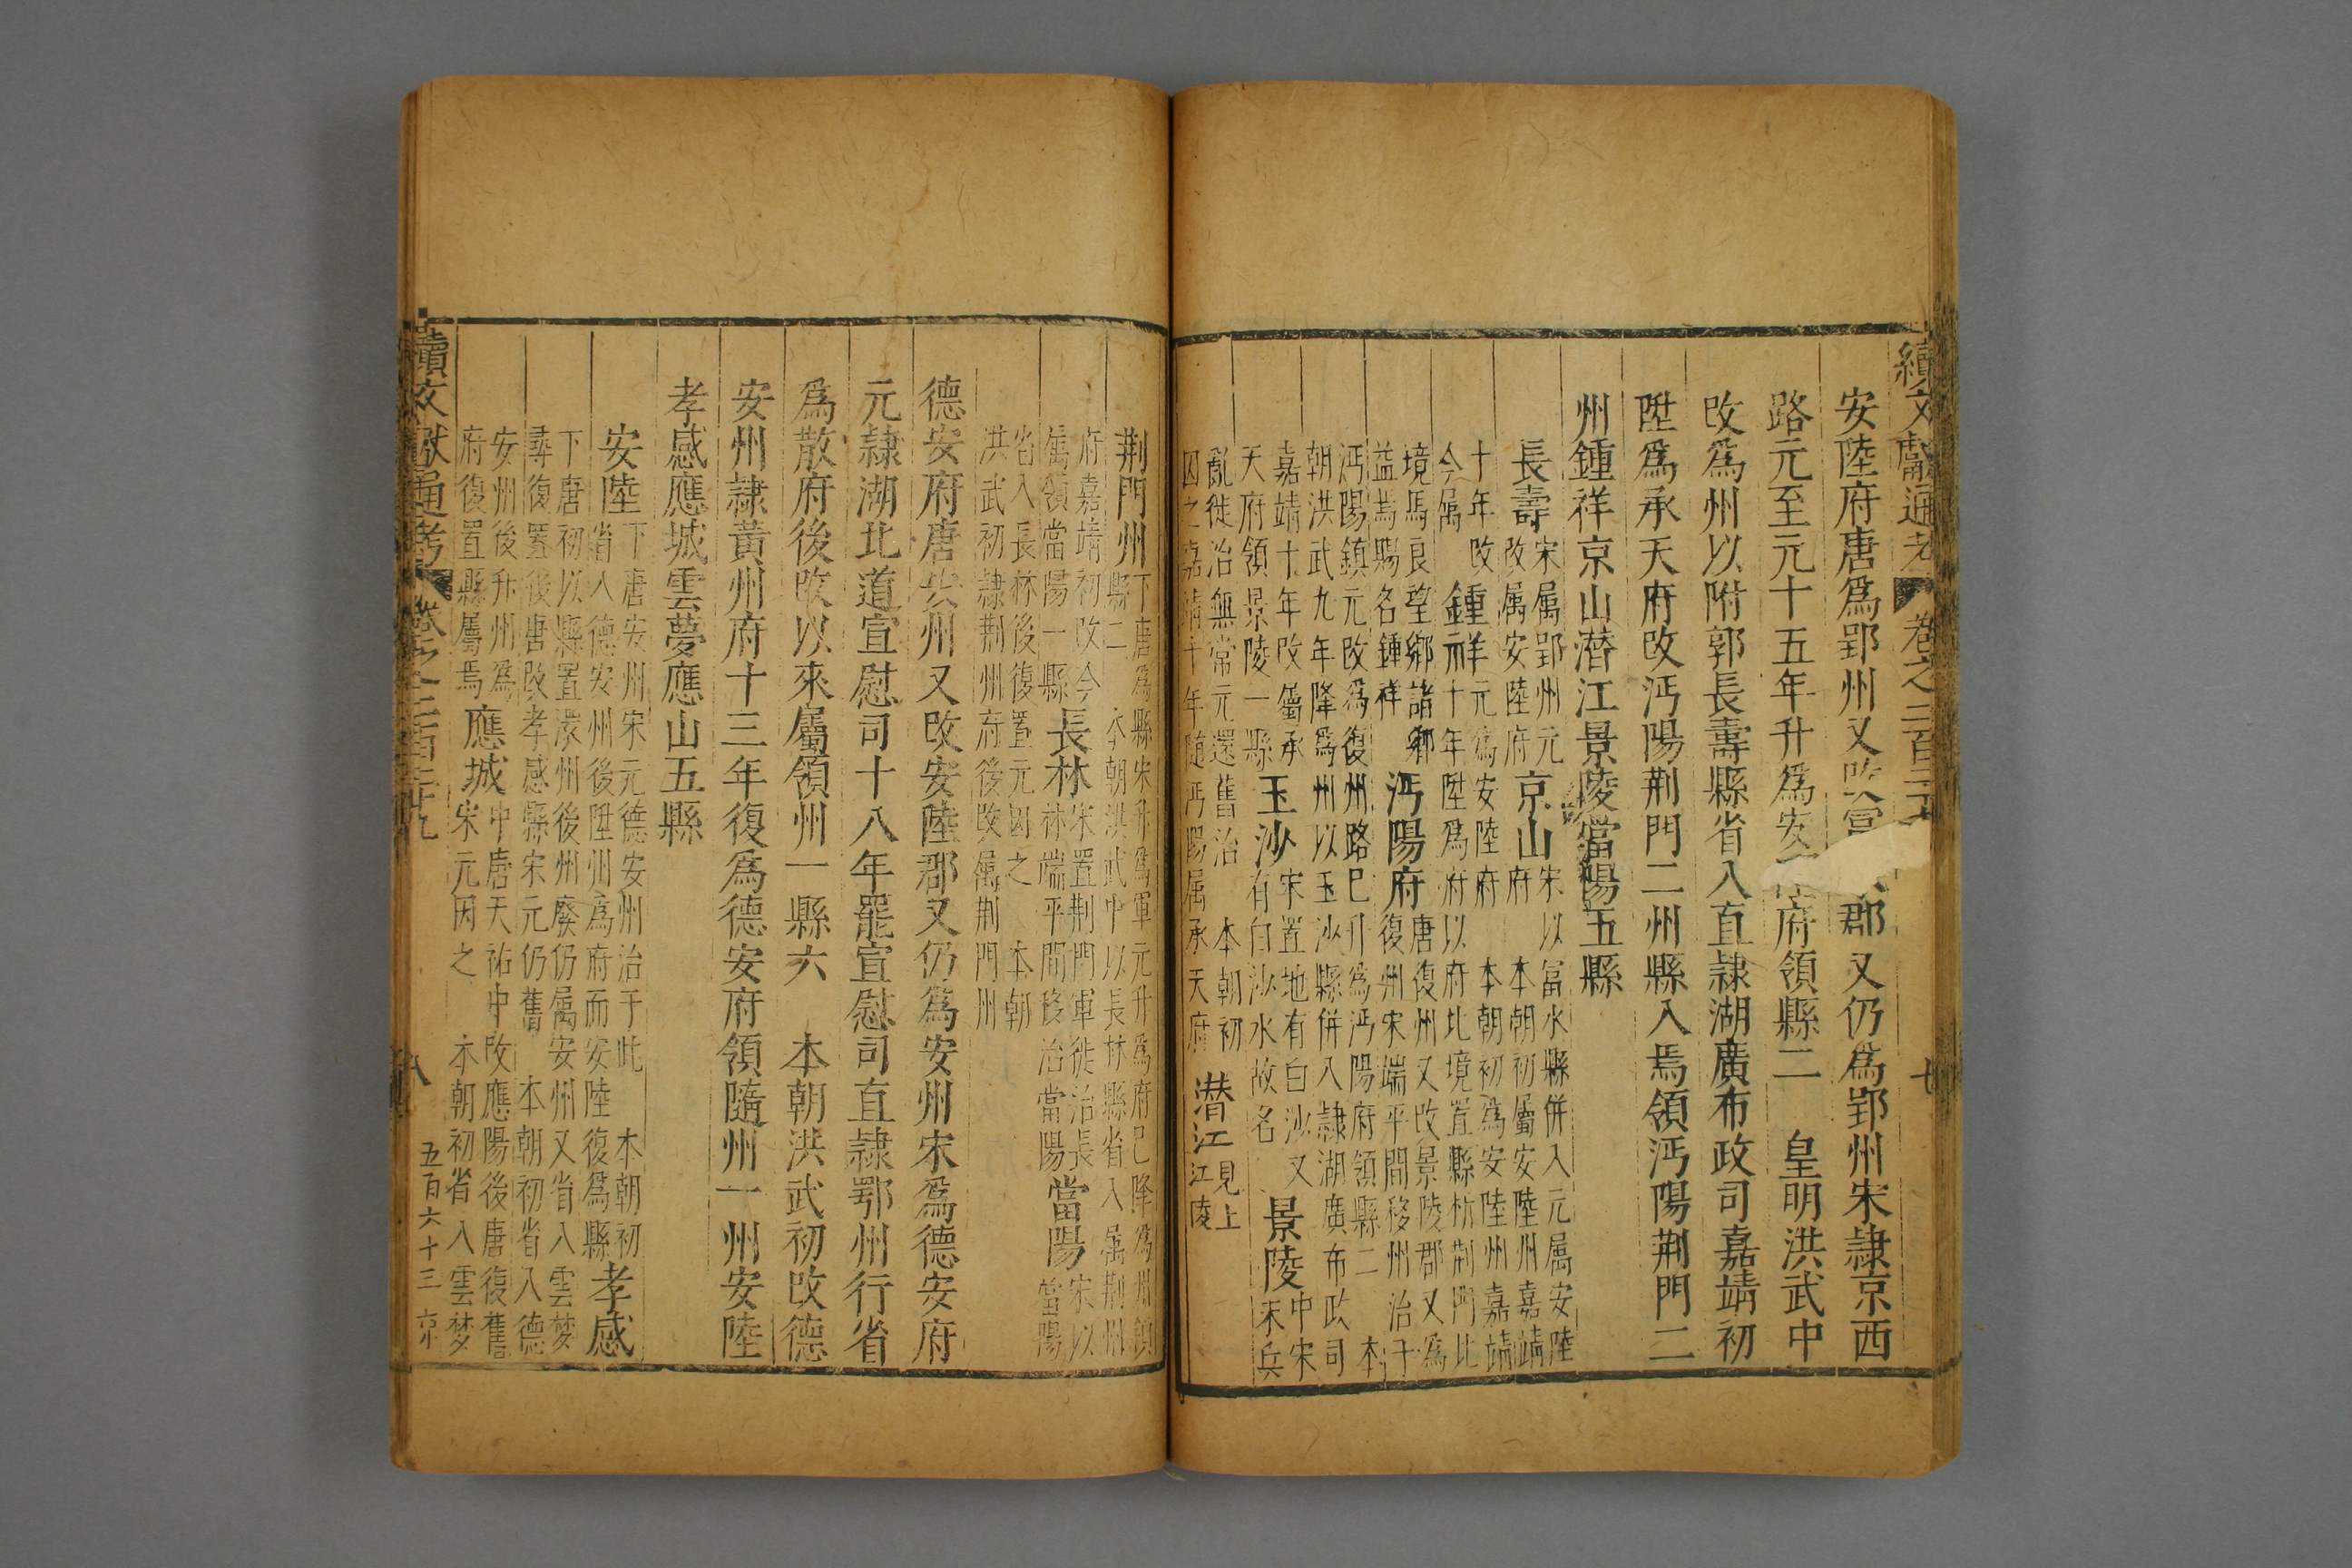 續文獻通考 卷之二百二十九 七
安陸府唐爲郢州又改富 郡又仍爲郢州宋隷京西
路元至元十五年升爲安 府領縣二 皇明洪武中
改爲州以附郭長壽縣省入直隷湖廣布政司嘉靖初
陞爲承天府改沔陽荆門二州縣入焉領沔陽荆門二
州鍾祥京山潛江景陵當陽五縣
長壽宋属郢州元
改属安陸府京山宋以富水縣併入元属安陸
府 本朝初屬安陸州嘉靖
十年改鍾祥元爲安陸府 本朝初爲安陸州嘉靖
今属 十年陞爲府以府北境置縣析荆門北
境馬良望鄉諸鄉
益焉賜名鍾祥沔陽府唐復州又改景陵郡又爲
復州宋端平間移州治于
沔陽鎮元改爲復州路已升爲沔陽府領縣二 本
朝洪武九年降爲州以玉沙縣併入隷湖廣布政司
嘉靖十年改屬承
天府領景陵一縣玉沙宋置地有白沙又
有白沙水故名景陵中宋
末兵
亂徙治無常元還舊治 本朝初
因之嘉靖十年隨沔陽属承天府潛江見上
江陵
荆門州下唐爲縣宋升爲軍元升爲府已降爲州領
縣二 本朝洪武中以長林縣省入属荆州
府嘉靖初改今
属領當陽一縣長林宋置荆門軍徙治長
林端平間移治當陽當陽宋以
當陽
省入長林後復置元因之 本朝
洪武初隷荆州府後改属荆門州
德安府唐安州又改安陸郡又仍爲安州宋爲德安府
元隷湖北道宣慰司十八年罷宣慰司直隷鄂州行省
爲散府後改以來屬領州一縣六 本朝洪武初改德
安州隷黃州府十三年復爲德安府領隨州一州安陸
孝感應城雲夢應山五縣
安陸下唐安州宋元德安州治于此 本朝初
省入德安州後陞州爲府而安陸復爲縣孝感
下唐初以縣置澴州後州廢仍属安州又省入雲梦
尋復置後唐改孝感縣宋元仍舊 本朝初省入德
安州後升州爲
府復置縣屬焉應城中唐天祐中改應陽後唐復舊
宋元因之 本朝初省入雲梦
續文獻通考 卷之二百二十九 八 五百六十三